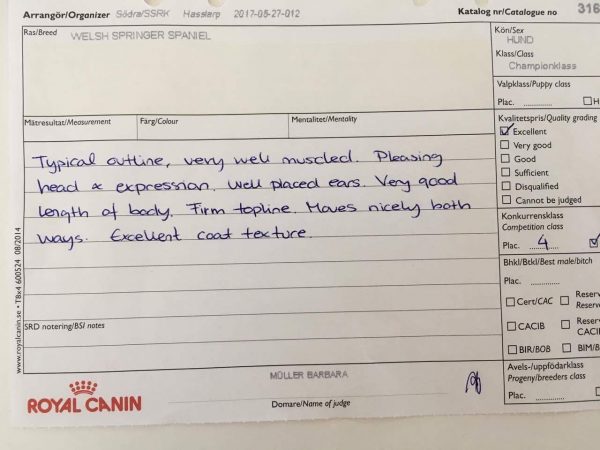 Arrangör/Organizer Södra/SSRK Hasslarp 2017-05-27-012 Katalog nr/Catalogue no 316
Ras/Breed WELSH SPRINGER SPANIEL
Kön/Sex
HUND
Klass/Class
Championklass
Valpklass/Puppy class
Plac. ............. H
Mätresultat/Measurement Färg/Colour Mentalitet/Mentality
Kvalitetspris/Quality grading
Excellent
Very good
Good
Sufficient
Disqualified
Cannot be judged
Typical outline, very well muscled. Pleasing
head & expression. Well placed ears. Very good
length of body. Firm topline. Moves nicely both
ways. Excellent coat texture.
Konkurrensklass
Competition class
Plac. 4
Bhkl/Btkl/Best male/bitch
Plac. .............
Cert/CAC Reserv
Reserve
CACIB Reserv
CACI
BIR/BOB BIM/B
SRD notering/BSI notes
www.royalcanin.se • T8x4 600524 08/2014
Avels-/uppfödarklass
Progeny/breeders class
Plac. .............
MÜLLER BARBARA
Domare/Name of judge
ROYAL CANIN